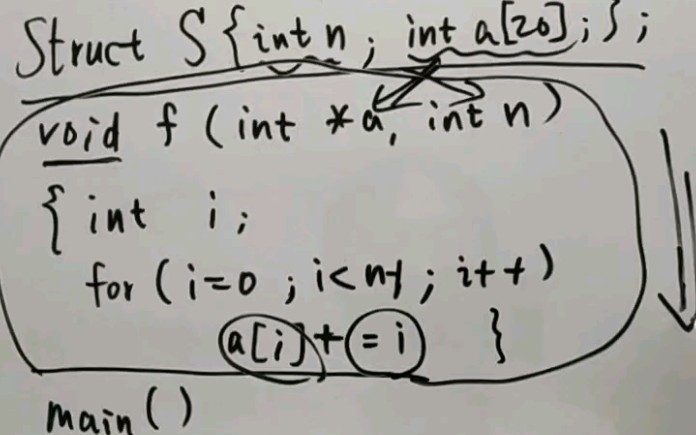 Struct S{int n; int a[20];};
void f(int *a, int n)
{int i;
for(i=0;i<n-1;i++)
a[i]+=i }
main()